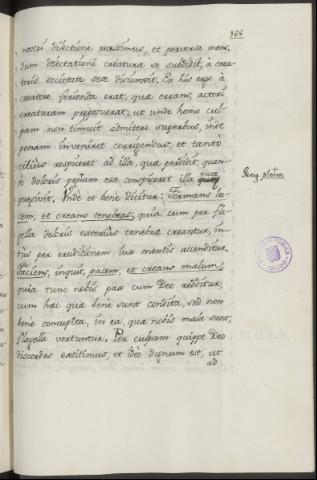 368
nostri dilectione præssimus, et perversa mens,
dum delectationi creaturæ se subdidit, à crea-
toris societate sese disiunxit. Ex his ergo à
creatore ferienda erat, quæ creans, actori
creaturam præposuerat, ut unde homo cul-
pam non timuit admitere superbus, inde
penam inveniret corrigendus, et tanto
citius respiceret ad illa, quæ perdidit, quan-
to doloris penam esse conspiceret illa quæ
quæsivit. Unde et bene dicitur: Formans lu-
cem, et creans tenebras; quia cum per fla-
gella doloris exterius tenebræ creantur, in-
tus per eruditionem lux mentis accenditur.
Faciens, inquit, pacem, et creans malum,
quia tunc nobis pax cum Deo redditur,
cum hæc quæ bene sunt condita, sed non
bene concupita, in ea, quæ nobis mala sunt,
flagella vertuntur. Per culpam quippe Deo
discordes extitimus, et ideò dignum est, ut
ad